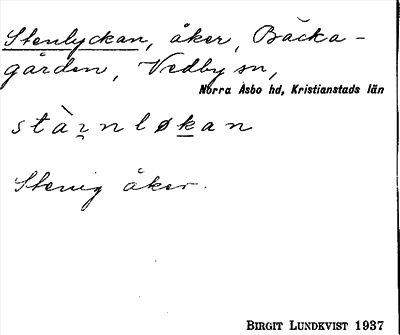 Stenlyckan, åker, Bäcka-
gården, Vedby sn,
Norra Åsbo hd, Kristianstads län
Stenig åker.
BIRGIT LUNDKVIST 1937